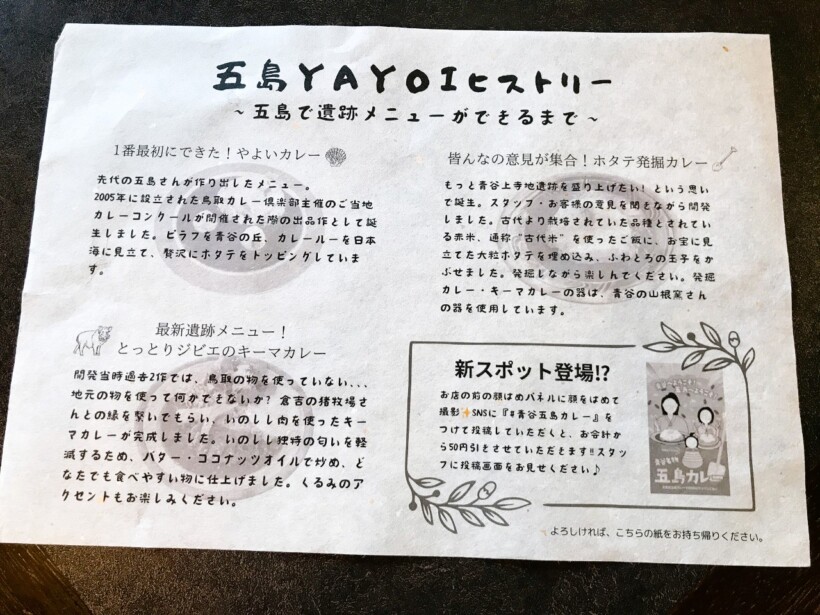 五島YAYOIヒストリー
~五島で遺跡メニューができるまで~
1番最初にできた！やよいカレー
先代の五島さんが作り出したメニュー。
2005年に設立された鳥取カレー倶楽部主催のご当地
カレーコンクールが開催された際の出品作として誕
生しました。ピラフを青谷の丘、カレールーを日本
海に見立て、贅沢にホタテをトッピングしていま
す。
最新遺跡メニュー！
とっとりジビエのキーマカレー
開発当時過去2作では、鳥取の物を使っていない...
地元の物を使って何かできないか？倉吉の猪牧場さ
んとの縁を繋いでもらい、いのしし肉を使ったキー
マカレーが完成しました。いのしし独特の匂いを軽
減するため、バター・ココナッツオイルで炒め、ど
なたでも食べやすい物に仕上げました。くるみのア
クセントもお楽しみください。
皆んなの意見が集合！ホタテ発掘カレー
もっと青谷上寺地遺跡を盛り上げたい！という思い
で誕生。スタッフ・お客様の意見を聞きながら開発
しました。古代より栽培されていた品種とされてい
る赤米、通称“古代米”を使ったご飯に、お宝に見
立てた大粒ホタテを埋め込み、ふわとろの玉子をか
ぶせました。発掘しながら楽しんでください。発掘
カレー・キーマカレーの器は、青谷の山根窯さん
の器を使用しています。
新スポット登場!?
お店の前の顔はめパネルに顔をはめて
撮影✨SNSに『#青谷五島カレー』を
つけて投稿していただくと、お会計か
ら50円引きさせていただきます!!スタッ
フに投稿画面をお見せください♪
五島カレー
よろしければ、こちらの紙をお持ち帰りください。